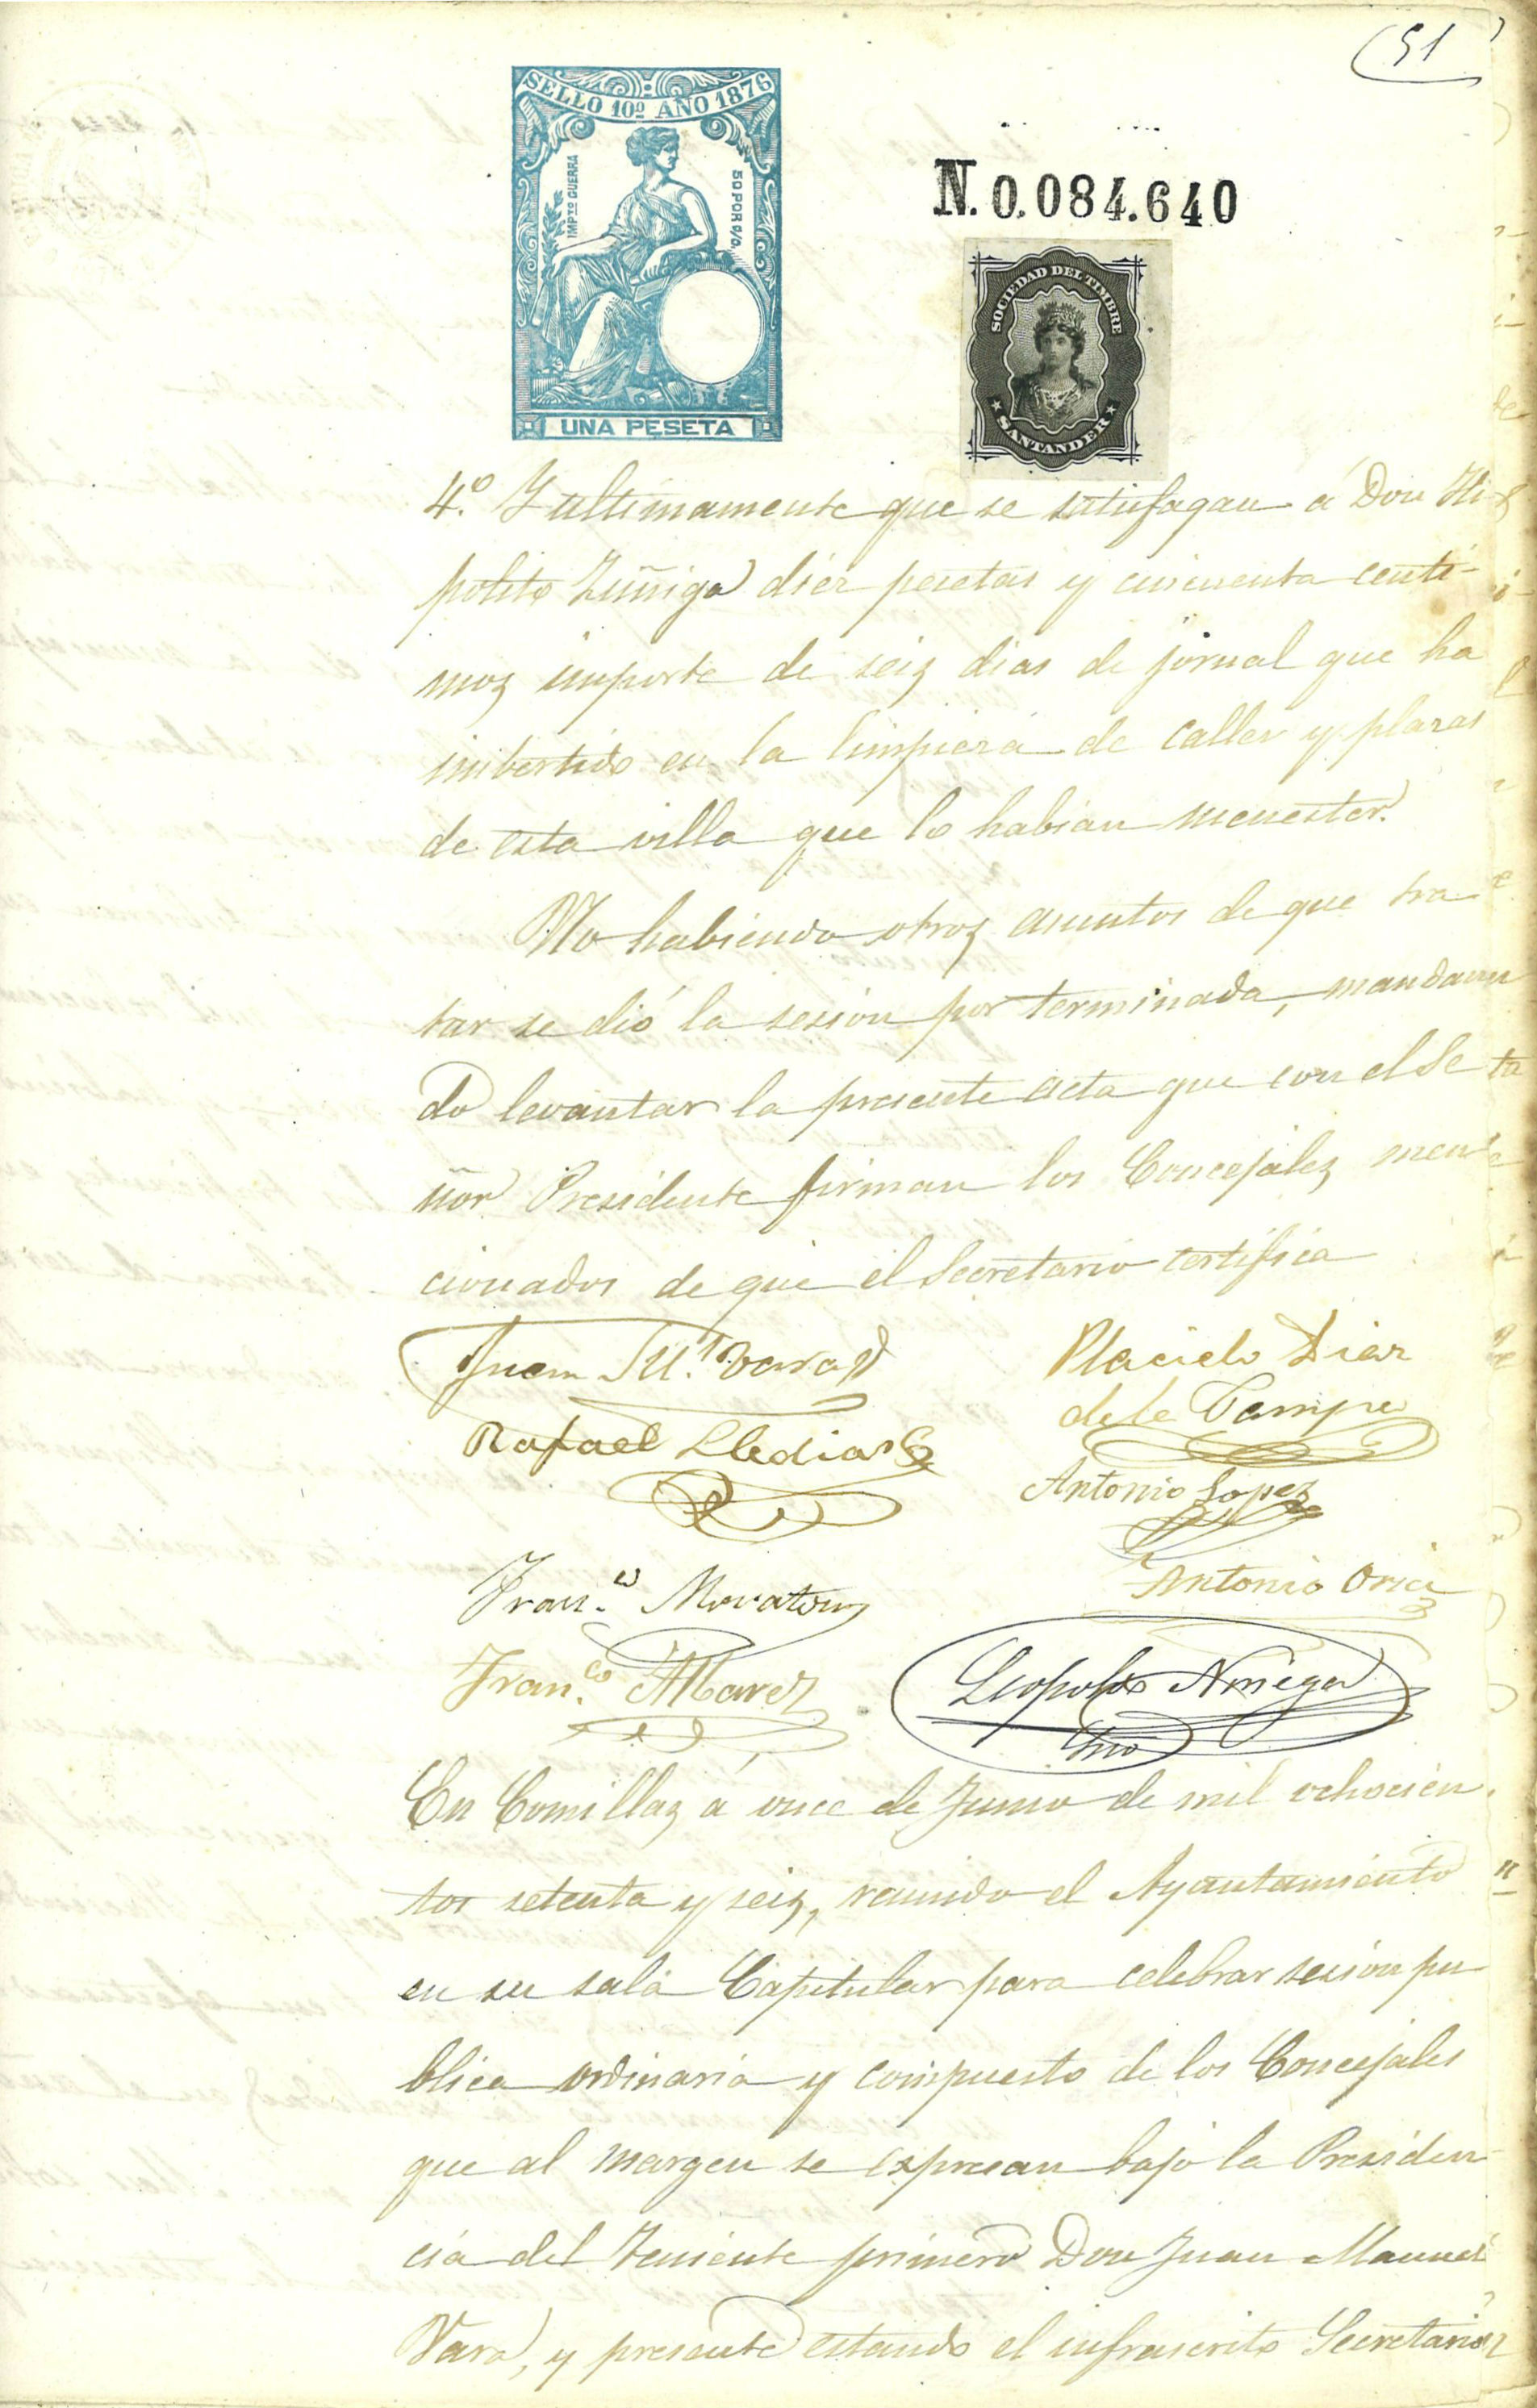 (51
SELLO 10º AÑO 1876
IMPTO GUERRA
50 POR %
UNA PESETA
N. 0.084.640
SOCIEDAD DEL TIMBRE
SANTANDER
4.º Y ultimamente que se satisfagan á Don Hi-
polito Zuñiga diez pesetas y cincuenta centi-
mos importe de seis dias de jornal que ha
imbertido en la limpieza de calles y plazas
de esta villa que lo habian menester.
No habiendo otros asuntos de que tra
tar se dió la sesion por terminada, mandan
do levantar la presente acta que con el Se
ñor Presidente firman los Concejales men
cionados de que el Secretario certifica
Juan Ml. Vara
Placido Diaz
de la Campa
Rafael Lledias
Antonio Lopez
Fran.co Moraton
Antonio Oria
Fran.co Alvarez
Leopoldo Noriega
Srio
En Comillas á once de Junio de mil ochocien
tos setenta y seis, reunido el Ayuntamiento
en su sala Capitular para celebrar sesion pu
blica ordinaria y compuesto de los Concejales
que al margen se expresan bajo la Presiden
cia del Teniente primero Don Juan Manuel
Vara, y presente estando el infrascrito Secretario